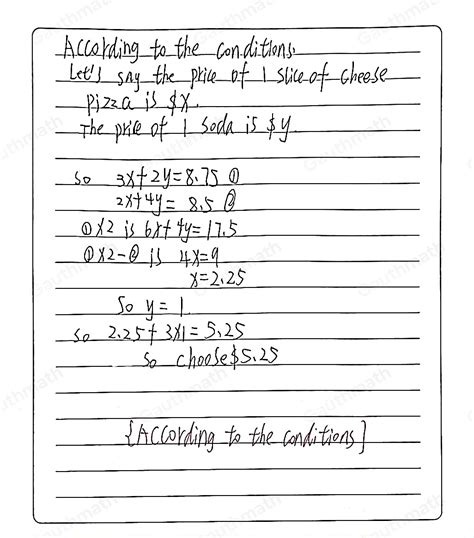 According to the conditions.
Let's say the price of 1 slice of cheese
pizza is $x.
The price of 1 soda is $y
so 3x+2y=8.75 ①
2x+4y= 8.5 ②
①x2 is 6x+4y=17.5
①x2-② is 4x=9
x=2.25
So y=1
so 2.25+3x1=5.25
So choose $5.25
{According to the conditions}